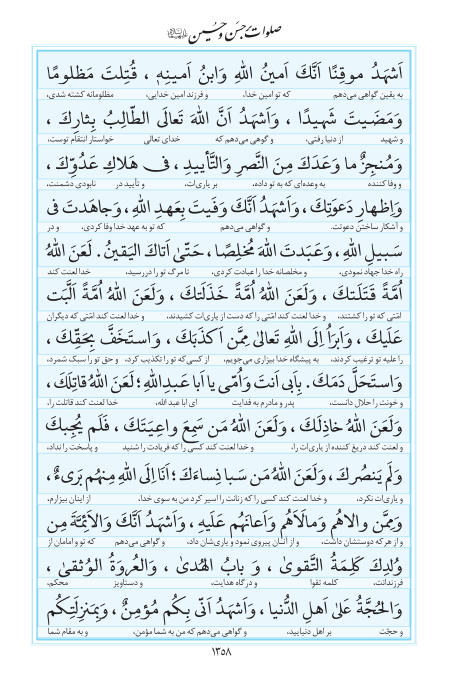 صلوات بر حسن و حسین علیهما السلام
اَشهَدُ موقِنًا اَنَّکَ اَمینُ اللهِ وَابنُ اَمینِهٖ ، قُتِلتَ مَظلومًا
به یقین گواهی می‌دهم که تو امین خدا، و فرزند امین خدایی، مظلومانه کشته شدی،
وَمَضَیتَ شَهیدًا ، وَاَشهَدُ اَنَّ اللهَ تَعالَی الطّالِبُ بِثارِکَ ،
و شهید از دنیا رفتی، و گواهی می‌دهم که خدای تعالی خواستار انتقام توست،
وَمُنجِزٌ ما وَعَدَکَ مِنَ النَّصرِ وَالتَّأییدِ ، فی هَلاكِ عَدُوِّکَ ،
و وفا کننده به وعده‌ای که به تو داده، بر یاری‌ات، و تأیید در نابودی دشمنت،
وَاِظهارِ دَعوَتِکَ ، وَاَشهَدُ اَنَّکَ وَفَیتَ بِعَهدِ اللهِ ، وَجاهَدتَ فی
و آشکار ساختن دعوتت. و گواهی می‌دهم که تو به عهد خدا وفا کردی، و در
سَبیلِ اللهِ ، وَعَبَدتَ اللهَ مُخلِصًا ، حَتّیٰ اَتاكَ الیَقینُ . لَعَنَ اللهُ
راه خدا جهاد نمودی، و مخلصانه خدا را عبادت کردی، تا مرگ تو را دررسید، خدا لعنت کند
اُمَّةً قَتَلَتکَ ، وَلَعَنَ اللهُ اُمَّةً خَذَلَتکَ ، وَلَعَنَ اللهُ اُمَّةً اَلَّبَت
امّتی که تو را کشتند، و خدا لعنت کند امّتی را که دست از یاری‌ات کشیدند، و خدا لعنت کند امّتی که دیگران
عَلَیكَ ، وَاَبرَأُ اِلَی اللهِ تَعالیٰ مِمَّن اَکذَبَکَ ، وَاستَخَفَّ بِحَقِّکَ ،
را علیه تو ترغیب کردند، به پیشگاه خدا بیزاری می‌جویم، از کسی که تو را تکذیب کرد، و حق تو را سبک شمرد،
وَاستَحَلَّ دَمَکَ . بِاَبی اَنتَ وَاُمّی یا اَبا عَبدِاللهِ ؛ لَعَنَ اللهُ قاتِلَکَ ،
و خونت را حلال دانست، پدر و مادرم به فدایت ای ابا عبد الله، خدا لعنت کند قاتلت را،
وَلَعَنَ اللهُ خاذِلَکَ ، وَلَعَنَ اللهُ مَن سَمِعَ واعِیَتَکَ ، فَلَم یُجِبکَ
و لعنت کند دریغ کننده از یاری‌ات را، و خدا لعنت کند کسی را که فریادت را شنید و پاسخت را نداد،
وَلَم یَنصُرکَ ، وَلَعَنَ اللهُ مَن سَبا نِساءَکَ ؛ اَنَا اِلَی اللهِ مِنهُم بَریءٌ ،
و یاری‌ات نکرد، و خدا لعنت کند کسی را که زنانت را اسیر کرد من به سوی خدا، از اینان بیزارم،
وَمِمَّن والاهُم وَمالَاَهُم وَاَعانَهُم عَلَیهِ ، وَاَشهَدُ اَنَّکَ وَالاَئِمَّةَ مِن
و از هر که دوستشان داشت، و از آنان پیروی نمود و یاری‌شان داد، و گواهی می‌دهم که تو و امامان از
وُلدِكَ کَلِمَةُ التَّقویٰ ، وَ بابُ الهُدیٰ ، وَالعُروَةُ الوُثقیٰ ،
فرزندانت، کلمه تقوا و درگاه هدایت، و دستاویز محکم،
وَالحُجَّةُ عَلیٰ اَهلِ الدُّنیا ، وَاَشهَدُ اَنّی بِکُم مُؤمِنٌ ، وَبِمَنزِلَتِکُم
و حجّت بر اهل دنیایید، و گواهی می‌دهم که من به شما مؤمن، و به مقام شما
١٣٥٨